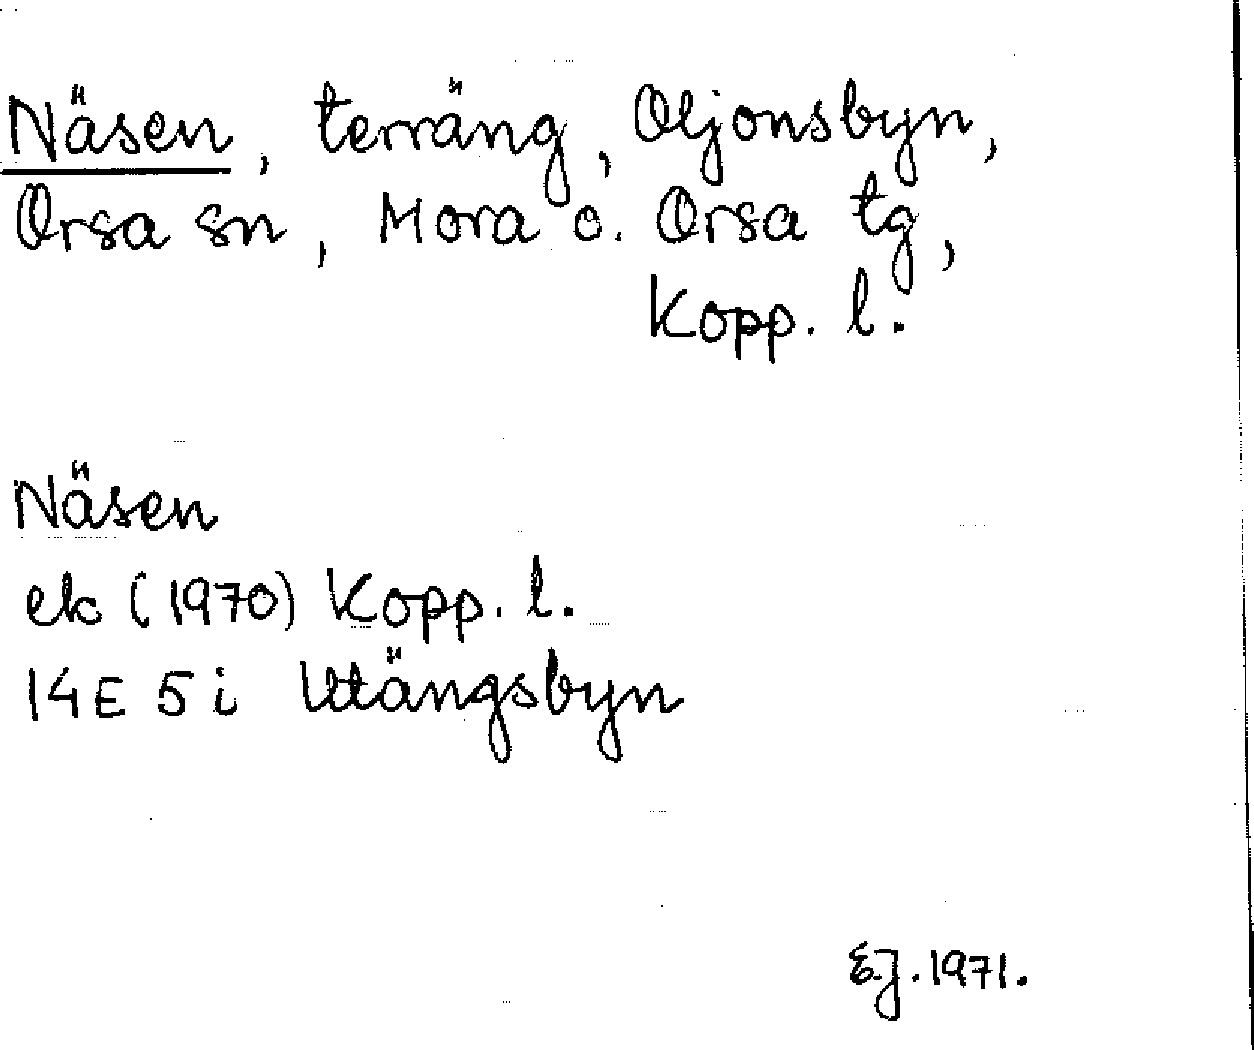 Näsen, terräng, Oljonsbyn,
Orsa sn, Mora o. Orsa tg,
Kopp. l.
Näsen
ek (1970) Kopp. l.
14E 5i Utängsbyn
E.J. 1971.